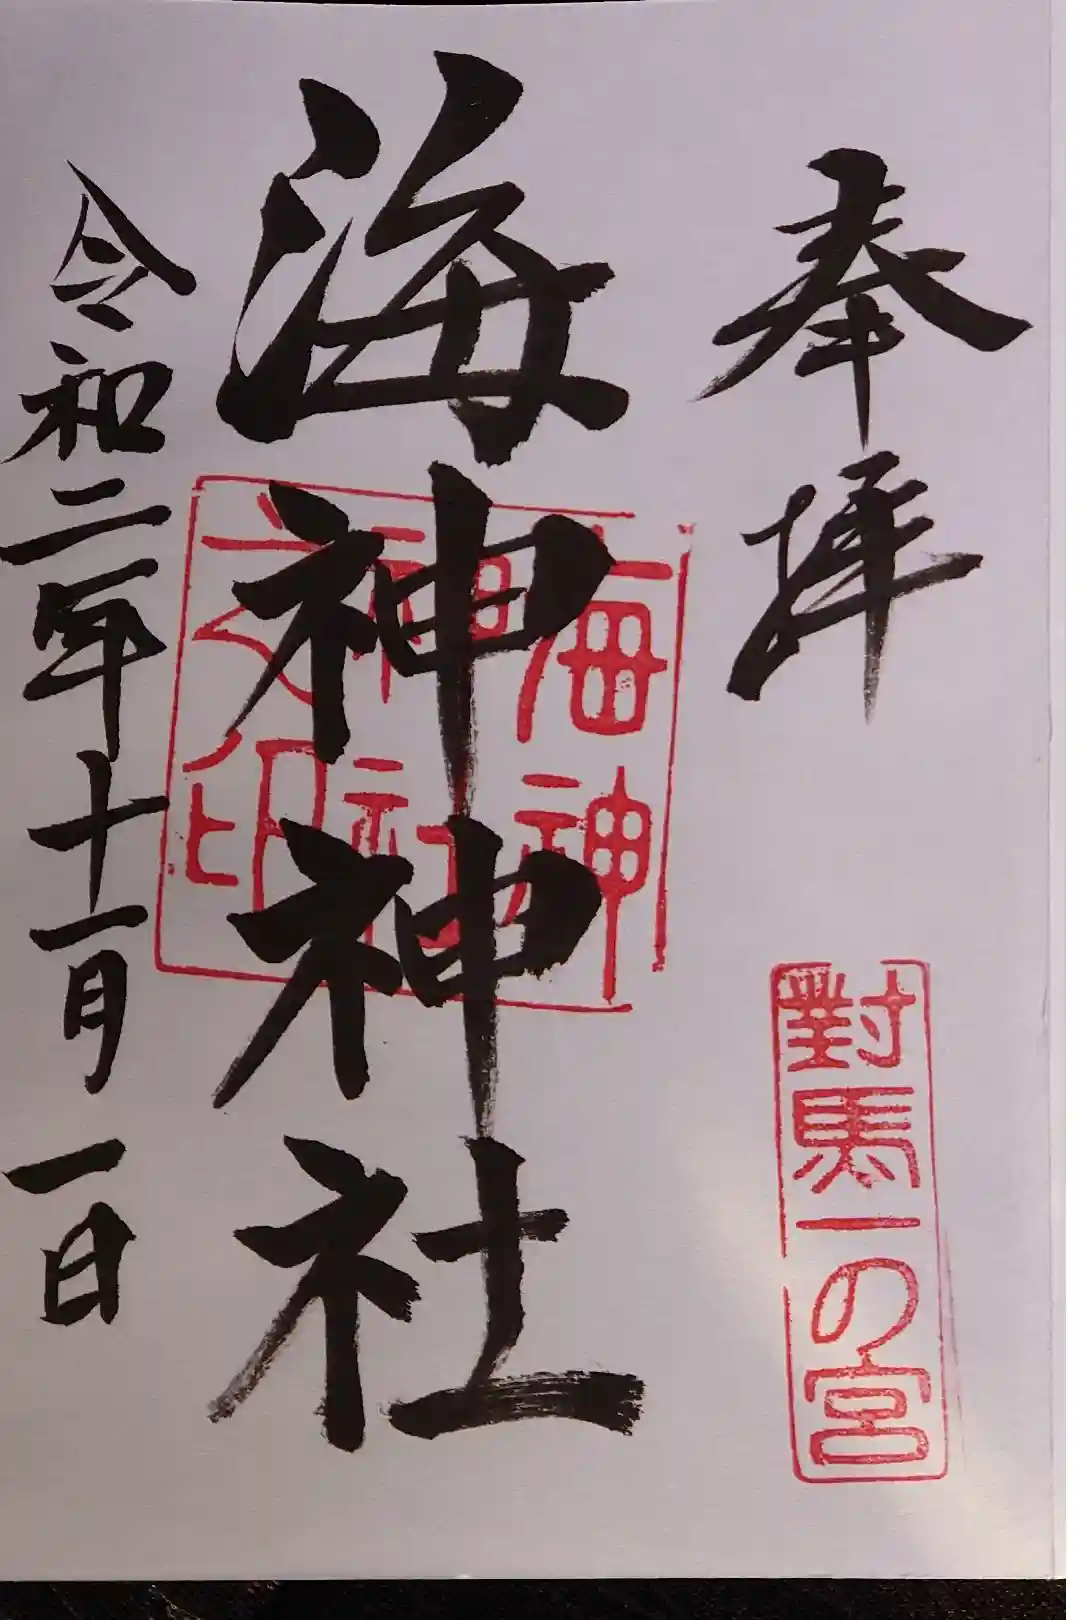 奉拝
對馬一の宮
海神神社
海神
神社
之印
令和二年十一月一日